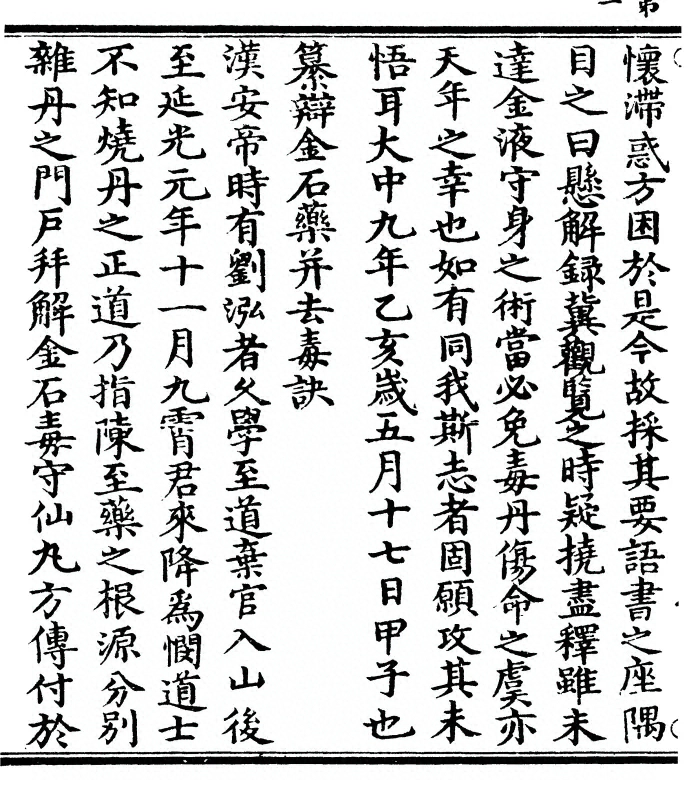 第一
懷滯惑方困於是今故採其要語書之座隅
目之曰懸解録冀觀覽之時疑撓盡釋雖未
達金液守身之術當必免毒丹傷命之虞亦
天年之幸也如有同我斯志者固願攻其未
悟耳大中九年乙亥歲五月十七日甲子也
纂辯金石藥并去毒訣
漢安帝時有劉泓者久學至道棄官入山後
至延光元年十一月九霄君來降爲憫道士
不知燒丹之正道乃指陳至藥之根源分别
雜丹之門戸拜解金石毒守仙丸方傳付於